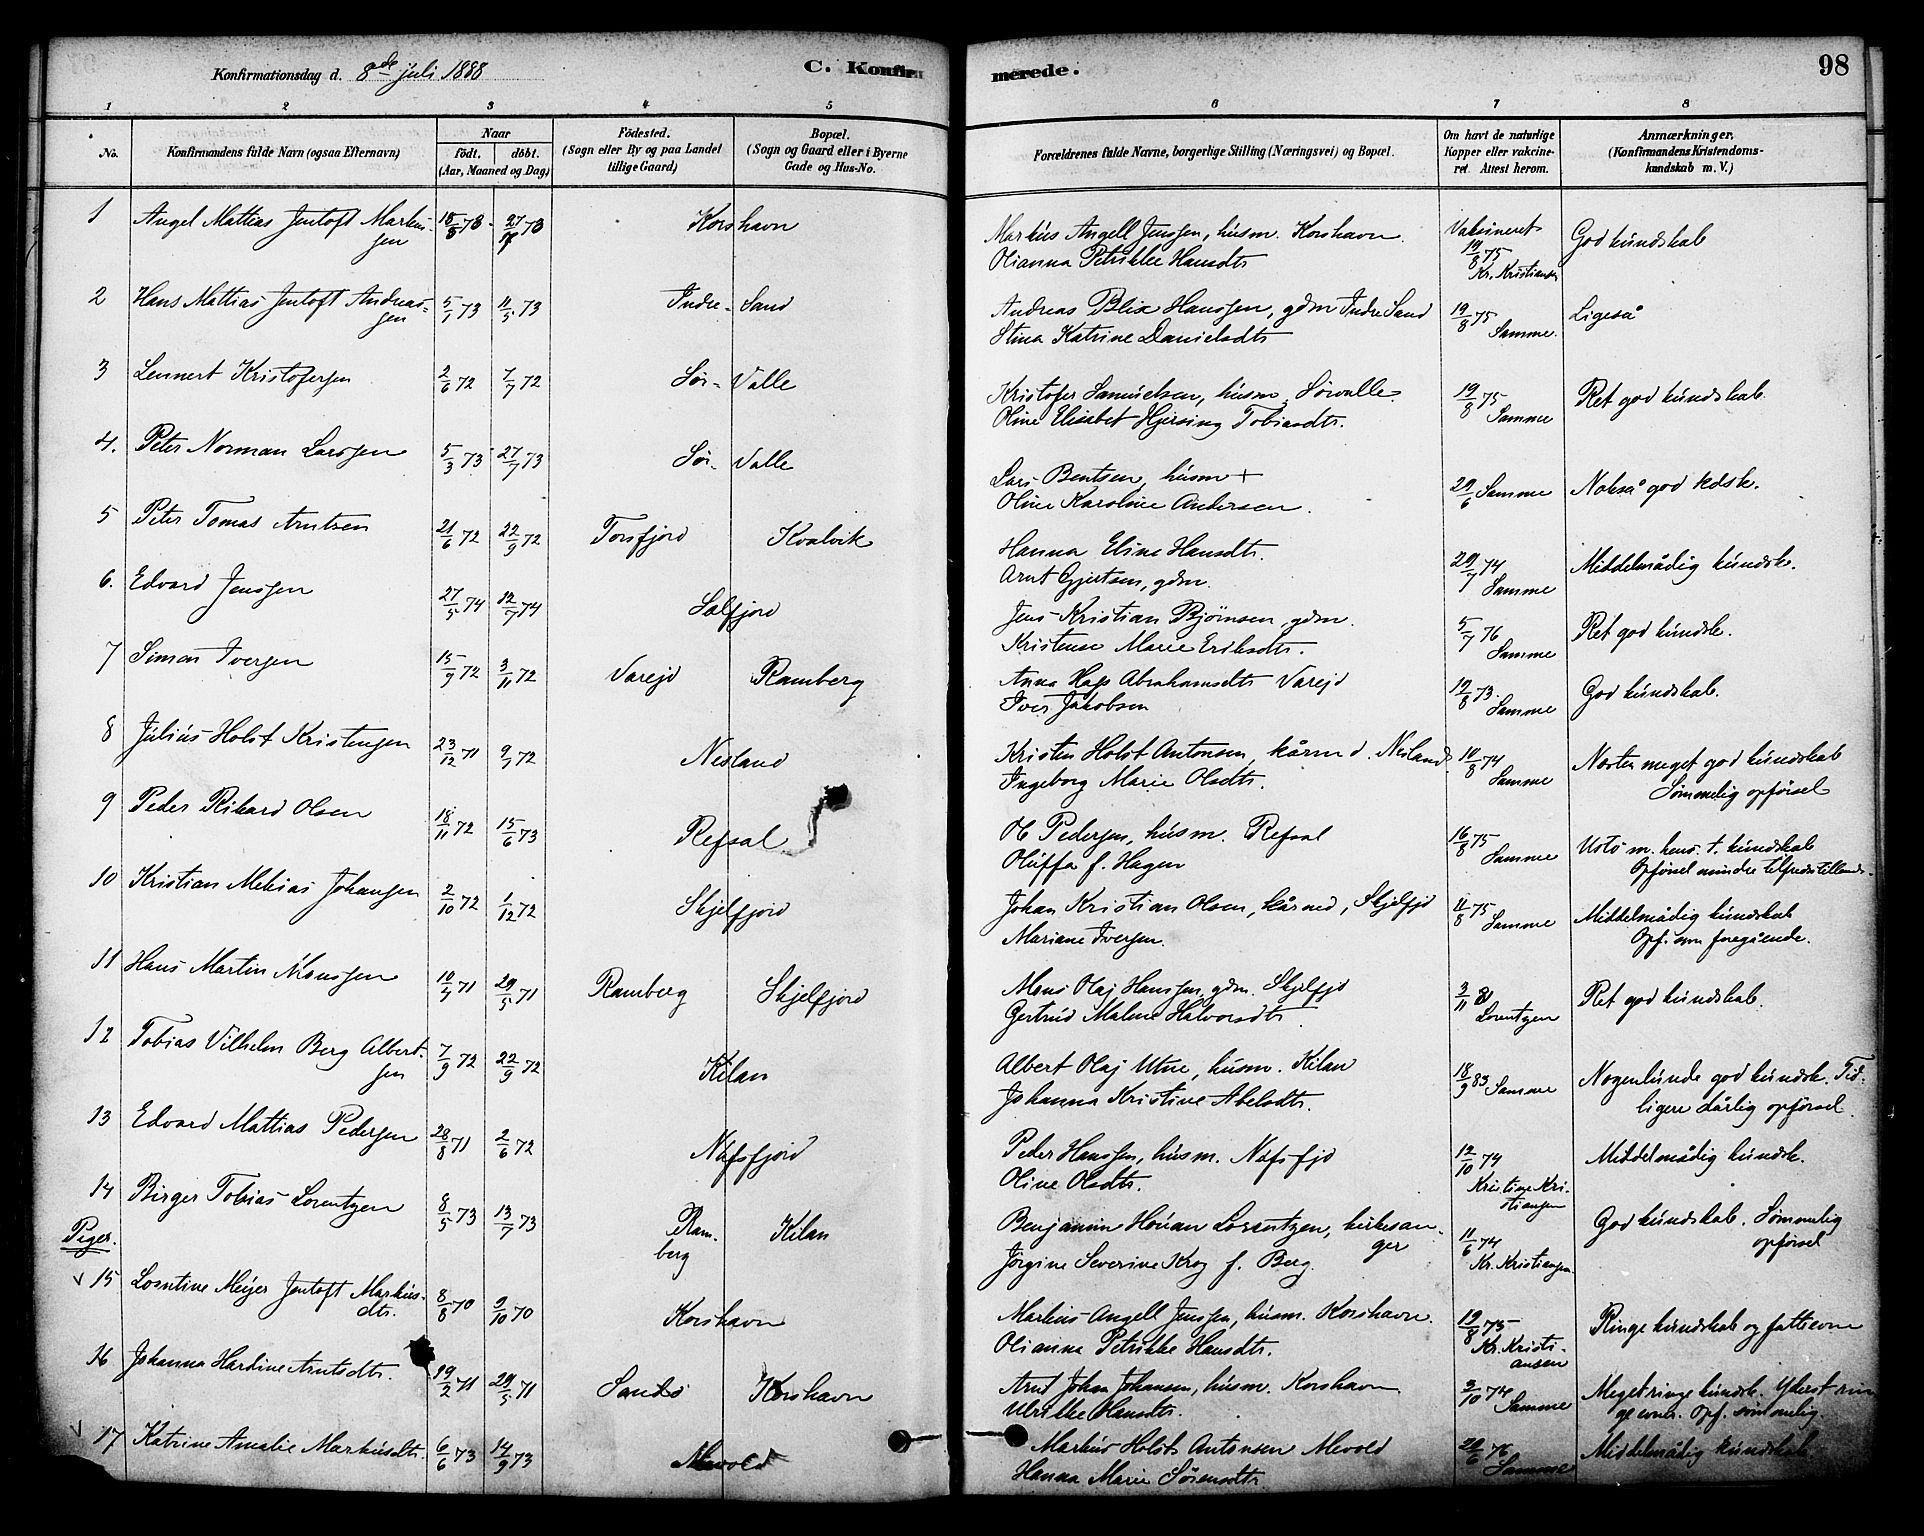 Konfirmationsdag d. 8de juli 1888
C. Konfirmerede.
98
1 2 3 4 5 6 7 8
No.
Konfirmandens fulde Navn (ogsaa Efternavn)
Naar
födt. döbt.
(Aar, Maaned og Dag)
Födested.
(Sogn eller By og paa Landet
tillige Gaard)
Bopæl.
(Sogn og Gaard eller i Byerne
Gade og Hus-No.
Forældrenes fulde Navne, borgerlige Stilling (Næringsvei) og Bopæl.
Om havt de naturlige
Kopper eller vakcine-
ret. Attest herom.
Anmærkninger.
(Konfirmandens Kristendoms-
kundskab m. V.)
1 Angel Mattias Jentoft Markus-
sen
Korshavn
Markus Angell Jenssen, husm. Korshavn.
Olianna Petrikke Hansdtr
Vaksineret
19/8 75
Kr. Kristiansen
God kundskab
2 Hans Mattias Jentoft Andreas-
sen
5/1 73 11/5 73
Indre- Sand
Andreas Blix Hanssen, gdm Indre Sand
Stina Katrine Danielsdtr
19/8 75 Samme.
Ligeså
3 Lennert Kristofersen
2/6 72 7/7 72
Sør- Valle
Kristofer Samuelsen, husm. Sørvalle.
Oline Elisabet Hjersing Tobiasdtr.
19/8 75 Samme
Ret god kundskab.
4. Peter Norman Larssen
5/3 73 27/7 73
Sør- Valle
Lars Bentsen, husm +
Oline Karoline Andersen.
29/6 Samme
Nokså god kdsk.
5 Peter Tomas Arntsen
21/6 72 22/9 72
Torsfjord Kvalvik
Hanna Eline Hansdtr.
Arnt Gjertsen, gdm.
29/7 74 Samme
Middelmådig kundsk.
6. Edvard Jenssen
27/5 74 12/7 74
Solfjord
Jens Kristian Bjørnsen, gdm.
Kristense Marie Eriksdtr.
5/7 76 Samme
Ret god kundsk.
7 Simon Iversen
15/9 72 3/11 72
Varejd Ramberg
Anna Hags Abrahamsdtr Varejd
Iver Jakobsen
12/8 73. Samme
God kundskab.
8 Julius Holst Kristensen
23/12 71 9/7 72
Nesland
Kristen Holst Antonsen, kårmd. Nesland
Ingeborg Marie Olsdtr.
10/8 74 Samme
Næsten meget god kundskab
Sømmelig opførsel
9 Peder Rikard Olsen
18/11 72 15/6 73
Refsal
Ol. Pedersen, husm. Refsal
Oluffa f. Hagen
16/8 75 Samme
m. hens. t. kundskab
Opførsel mindre tilfredsstillende.
10 Kristian Mekias Johansen
2/10 72 1/12 72
Skjelfjord
Johan Kristian Olsen, kårmd, Skjelfjd
Mariane Iversen.
11/8 75 Samme
Middelmådig kundskab
Opf. som foregående.
11 Hans Martin Monssen
10/4 71 29/5 71
Ramberg Skjelfjord
Mons Olaj Hanssen, gdm. Skjelfjd
Gertrud Malene Halvorsdtr.
3/11 81 Lorentzen
Ret god kundskab.
12 Tobias Vilhelm Berg Albert-
sen
7/9 72 22/9 72
Kilan
Albert Olaj Utne, husm. Kilan
Johanna Kristine Abelsdtr.
18/9 83 Samme
Nogenlunde god kundsk. Tid-
ligere dårlig opførsel.
13 Edvard Mattias Pedersen
28/8 71 2/6 72
Nufsfjord
Peder Hanssen, husm. Nufsfjd
Oline Olsdtr.
12/10 74
Kristine Kri-
stiansen
Middelmådig kundsk.
14 Birger Tobias Lorentzen
8/5 73 13/7 73
Ram-
berg
Kilan
Benjamin Houan Lorentzen, kirkesan-
ger
Jørgine Severine Krog f. Berg.
11/6 74
Kr. Kristiansen.
God kundskab. Sømmelig
opførsel
Piger.
15 Losntine Meyer Jentoft Markus-
dtr.
8/8 70 9/10 70
Korshavn
Markus Angell Jenssen, husm. Korshavn.
Olianna Petrikke Hansdtr.
19/8 75
Kr. Kristi-
ansen
Ringe kundskab og fatteevne
16 Johanna Hardine Arntsdtr.
19/2 71 29/5 71
Sandø Korshavn
Arnt Johan Johansen, husm. Korshavn
Ulrikke Hansdtr.
2/10 74 Samme
Meget ringe kundsk. Yderst rin
ge evner. Opf. sømmelig.
17 Katrine Amalie Markusdtr.
6/6 73 14/9 73
Mevold
Markus Holst Antonsen Mevold
Hanna Marie Sørensdtr
28/6 76 Samme
Middelmådig kundskab.